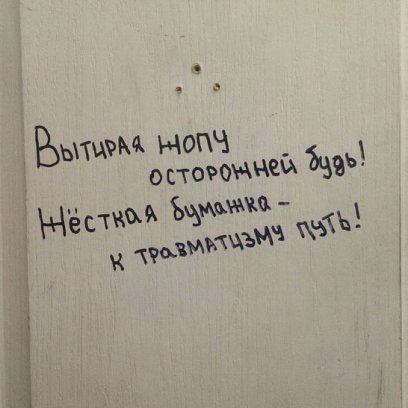 Вытирая жопу
осторожней будь!
Жёсткая бумажка –
к травматизму путь!